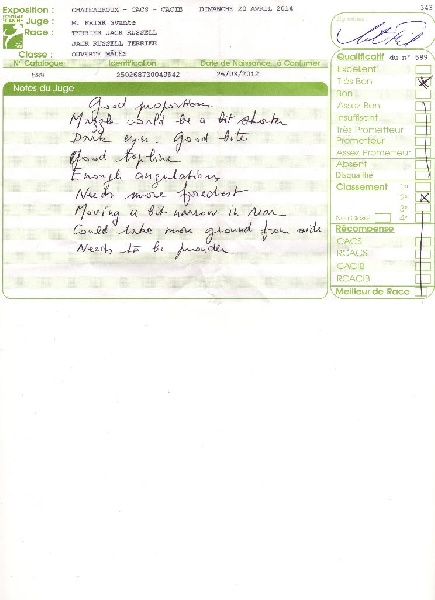 Exposition : CHATEAUROUX - CACS - CACIB DIMANCHE 20 AVRIL 2014
343
Juge :
Race : TERRIER JACK RUSSELL
JACK RUSSELL TERRIER
Classe : OUVERTE MÂLES
N° Catalogue Identification Date de Naissance, à Confirmer
250268730040842
Notes du Juge
Good proportion
Muzzle could be a bit shorter
Dark eyes. Good bite
Good topline
Enough angulations
Needs more forechest
Moving a bit narrow in rear
Could take more ground from side
Needs to be prouder
Qualificatif du n° 589
Excellent
Très Bon X
Bon
Assez Bon
Insuffisant
Très Prometteur
Prometteur
Assez Prometteur
Absent
Disqualifié
Classement 1er
2e X
3e
Non Classé 4e
Récompense
CACS
RCACS
CACIB
RCACIB
Meilleur de Race